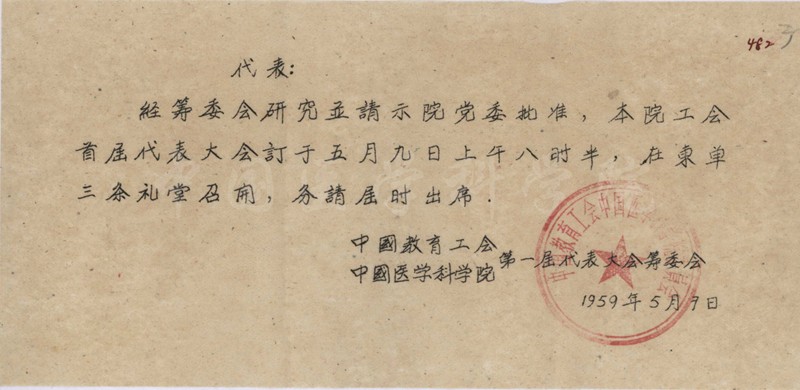 482
代表：
经筹委会研究並請示院党委批准，本院工会
首届代表大会訂于五月九日上午八时半，在東单
三条礼堂召開，务請届时出席．
中國教育工会
中國医学科学院
第一届代表大会筹委会
1959年5月7日